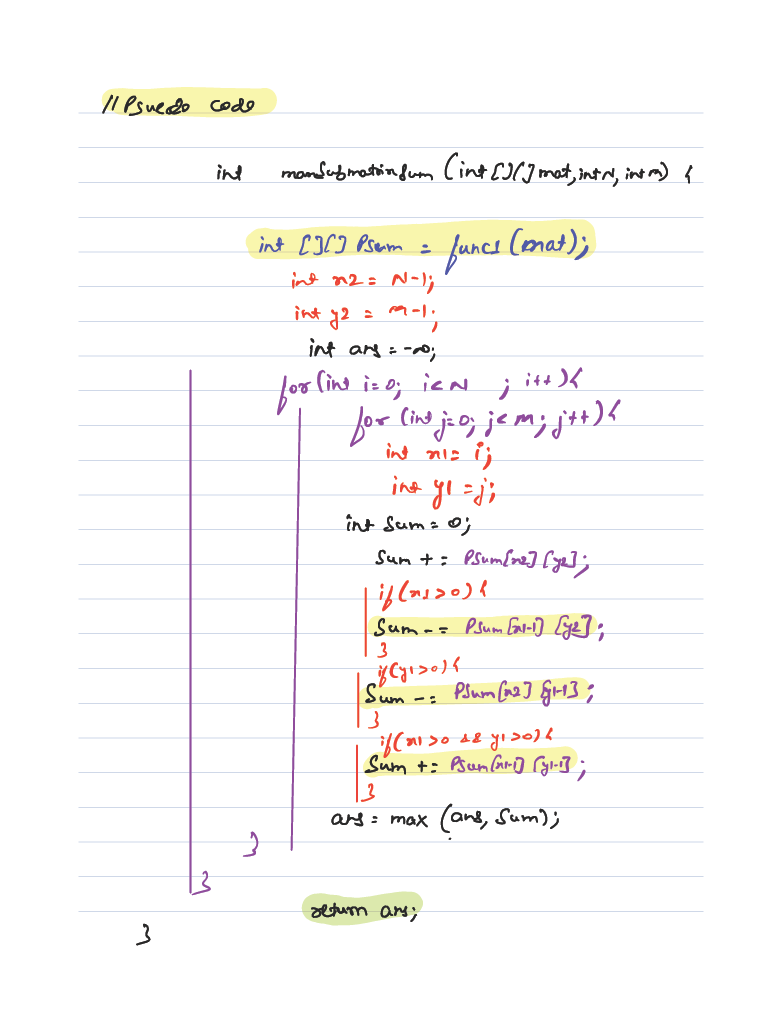 // Psuedo code
int maxSubmatrixSum (int [][] mat, int N, int m) {
int [][] Psum = funcs (mat);
int x2 = N-1;
int y2 = m-1;
int ans = -∞;
for (int i=0; i<N ; i++) {
for (int j=0; j<m; j++) {
int x1 = i;
int y1 = j;
int Sum = 0;
Sum += PSum[x2] [y2];
if (x1>0) {
Sum -= PSum [x1-1] [y2];
}
if (y1>0) {
Sum -= PSum [x2] [y1-1];
}
if (x1>0 && y1>0) {
Sum += PSum [x1-1] [y1-1];
}
ans = max (ans, Sum);
}
}
return ans;
}